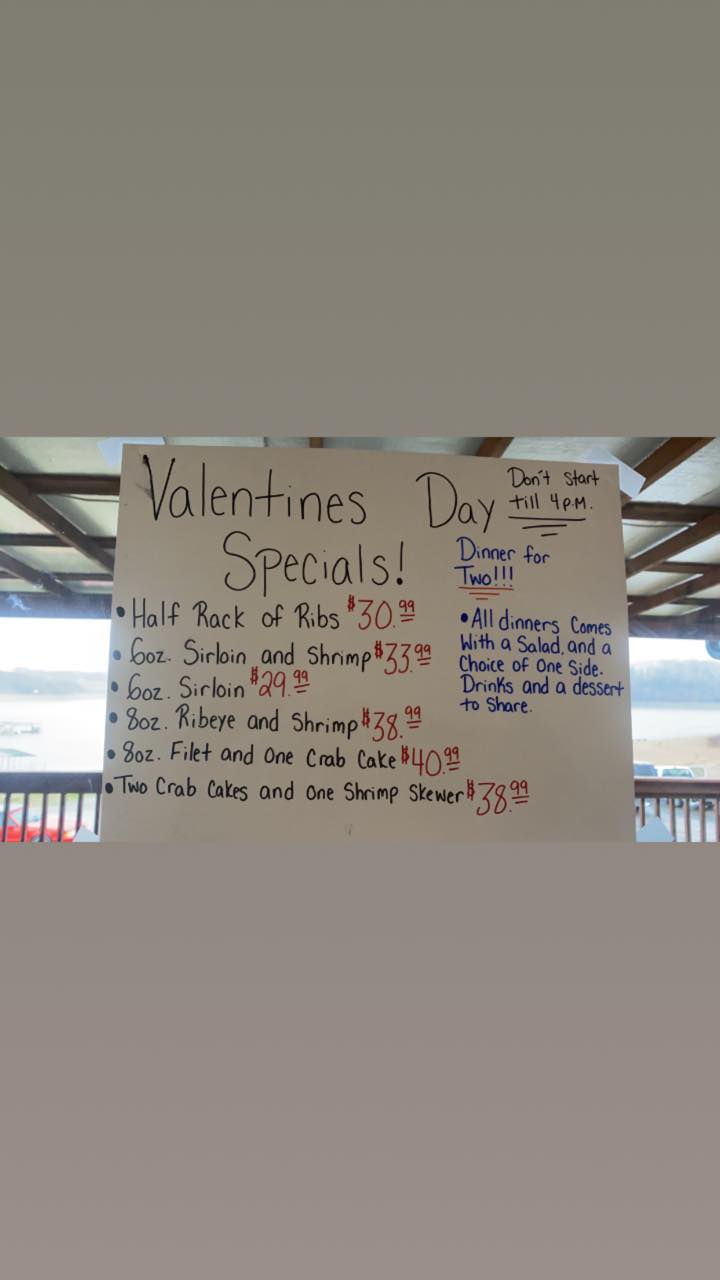 Valentines Day
Don't start
till 4 P.M.
Specials!
Dinner for
Two!!!
• Half Rack of Ribs $30.99
• 6oz. Sirloin and Shrimp $33.99
• 6oz. Sirloin $29.99
• 8oz. Ribeye and Shrimp $38.99
• 8oz. Filet and One Crab Cake $40.99
• Two Crab Cakes and One Shrimp Skewer $38.99
• All dinners Comes
With a Salad, and a
Choice of One Side.
Drinks and a dessert
to Share.